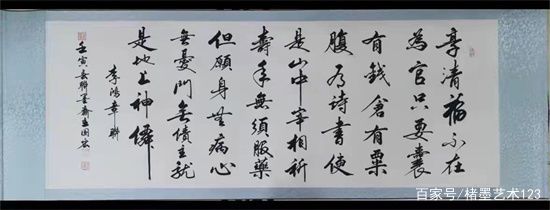 享清福不在
為官只要囊
有錢倉有粟
腹有詩書便
是山中宰相祈
壽年無須服藥
但願身無病心
無憂門無債主就
是地上神僊
李鴻章聯
壬寅墨齋
百家号/楮墨艺术123